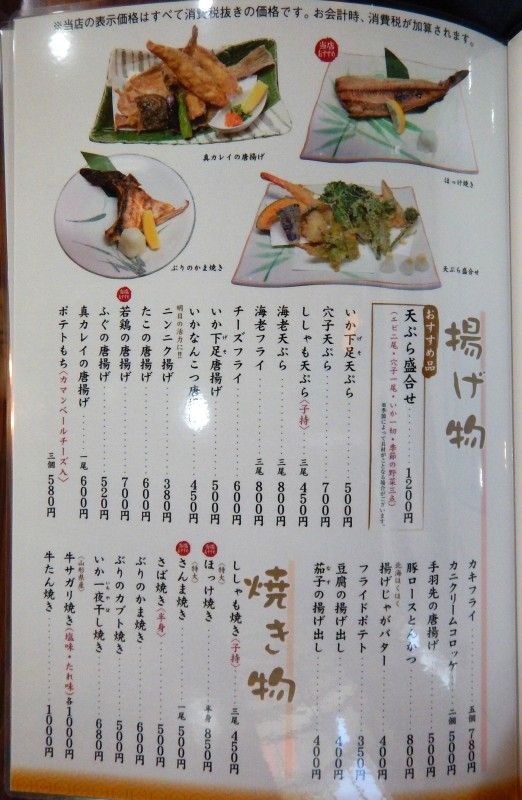 ※当店の表示価格はすべて消費税抜きの価格です。お会計時、消費税が加算されます。
真カレイの唐揚げ
当店おすすめ
ほっけ焼き
ぶりのかま焼き
天ぷら盛合せ
揚げ物
おすすめ品
天ぷら盛合せ……1200円
(エビ二尾・穴子一尾・いか一切・季節の野菜三点)
※季節によって具材がことなる場合がございます。
いか下足天ぷら……500円
穴子天ぷら……700円
ししゃも天ぷら(子持) 三尾 450円
海老天ぷら……三尾 800円
海老フライ……三尾 800円
チーズフライ……600円
いか下足唐揚げ……500円
いかなんこつ唐揚げ……450円
明日の活力に!!
ニンニク揚げ……380円
たこの唐揚げ……600円
当店おすすめ
若鶏の唐揚げ……700円
ふぐの唐揚げ……520円
真カレイの唐揚げ 一尾 600円
ポテトもち(カマンベールチーズ入) 三個 580円
カキフライ……五個 780円
カニクリームコロッケ……二個 500円
手羽先の唐揚げ……500円
豚ロースとんかつ……800円
北海ほくほく
揚げじゃがバター……400円
フライドポテト……350円
豆腐の揚げ出し……400円
茄子の揚げ出し……400円
焼き物
ししゃも焼き(子持) 三尾 450円
当店おすすめ
(特大)
ほっけ焼き……半身 850円
当店おすすめ
(特大)
さんま焼き……一尾 500円
さば焼き(半身)……500円
ぶりのかま焼き……600円
ぶりのカブト焼き……500円
いか一夜干し焼き……680円
(山形県産)
牛サガリ焼き(塩味・たれ味) 各1000円
牛たん焼き……1000円